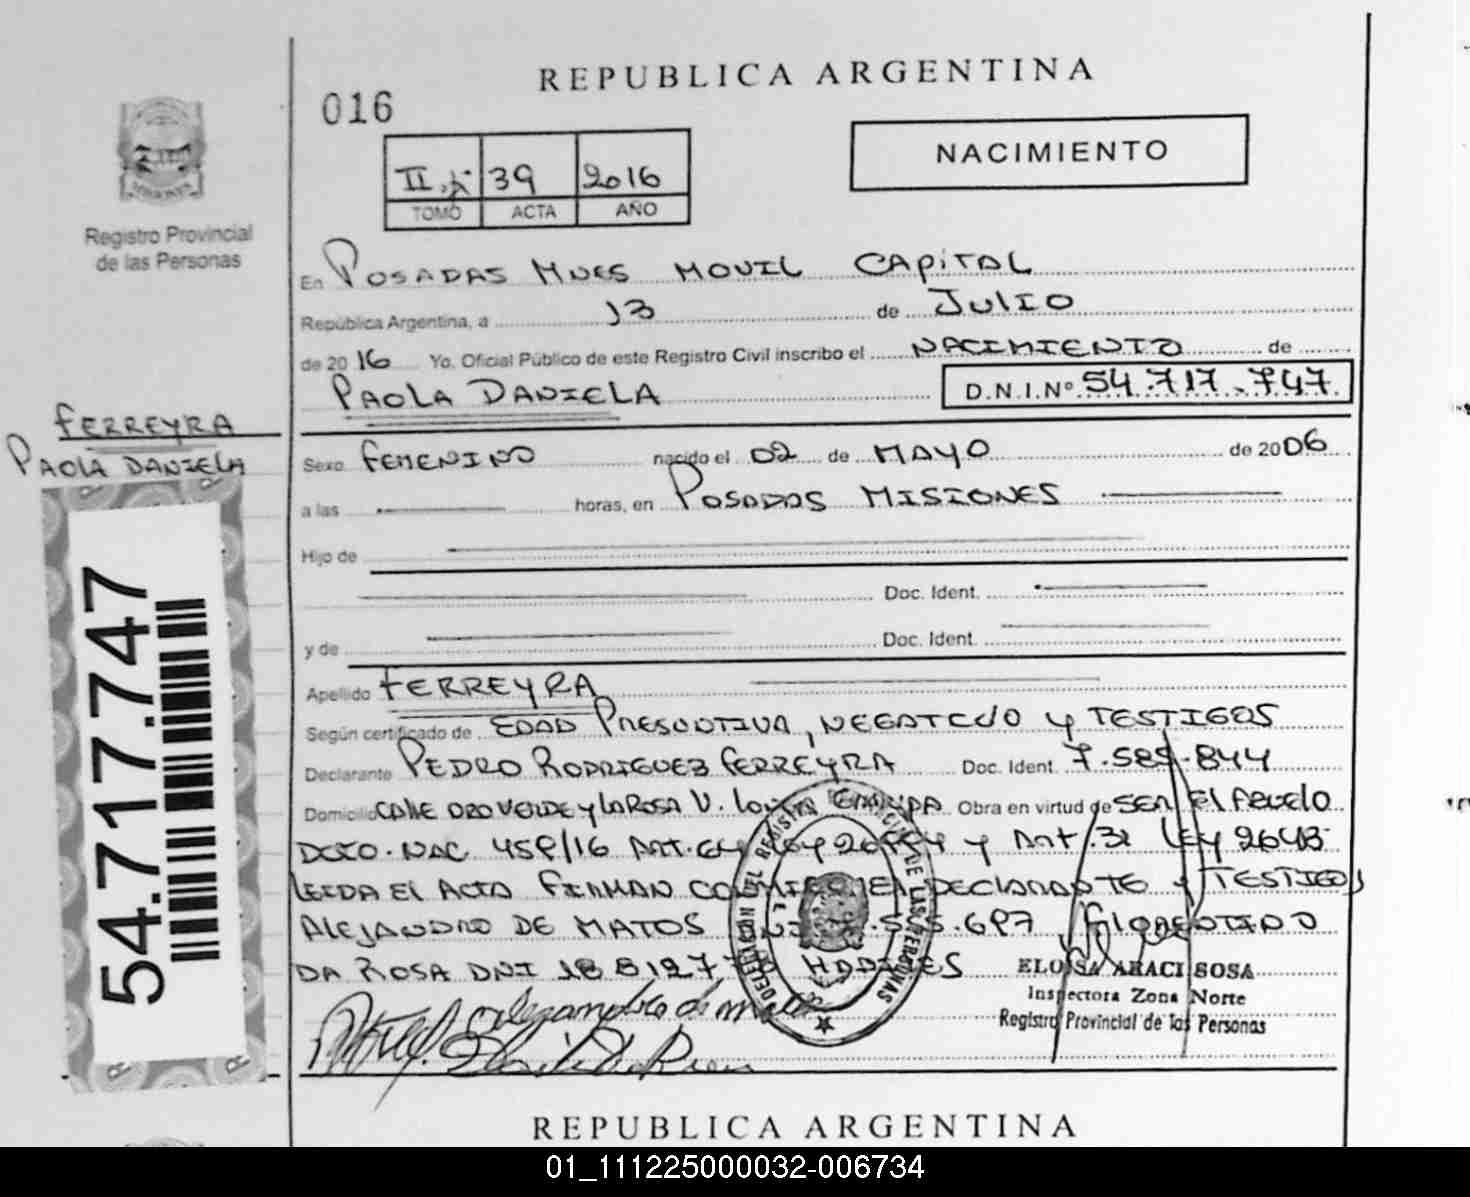 REPUBLICA ARGENTINA
016
NACIMIENTO
II 39 2016
TOMO ACTA AÑO
Registro Provincial
de las Personas
En POSADAS MNES MOVIL CAPITAL
República Argentina, a 13 de JULIO
de 2016 Yo. Oficial Público de este Registro Civil inscribo el NACIMIENTO de
PAOLA DANIELA D.N.I.Nº 54.717.747
FERREYRA
PAOLA DANIELA
Sexo FEMENINO nacido el 02 de MAYO de 2006
a las horas, en POSADAS MISIONES
Hijo de
Doc. Ident.
y de Doc. Ident.
54.717.747
Apellido FERREYRA
Según certificado de EDAD PRESUNTIVA, NEGATIVO y TESTIGOS
Declarante PEDRO RODRIGUEZ FERREYRA Doc. Ident. 7.585.844
Domicilio CALLE ORO VERDE y LA ROSA V. Obra en virtud de SER El Abuelo
DCTO. NAC 458/16 ART. 64 y ART. 31 LEY
LEIDA El ACTA FIRMAN DECLARANTE y TESTIGOS
ALEJANDRO DE MATOS .697 FLORENTINO
DA ROSA DNI
ELOISA ARACI SOSA
Inspectora Zona Norte
Registro Provincial de las Personas
REPUBLICA ARGENTINA
01_111225000032-006734